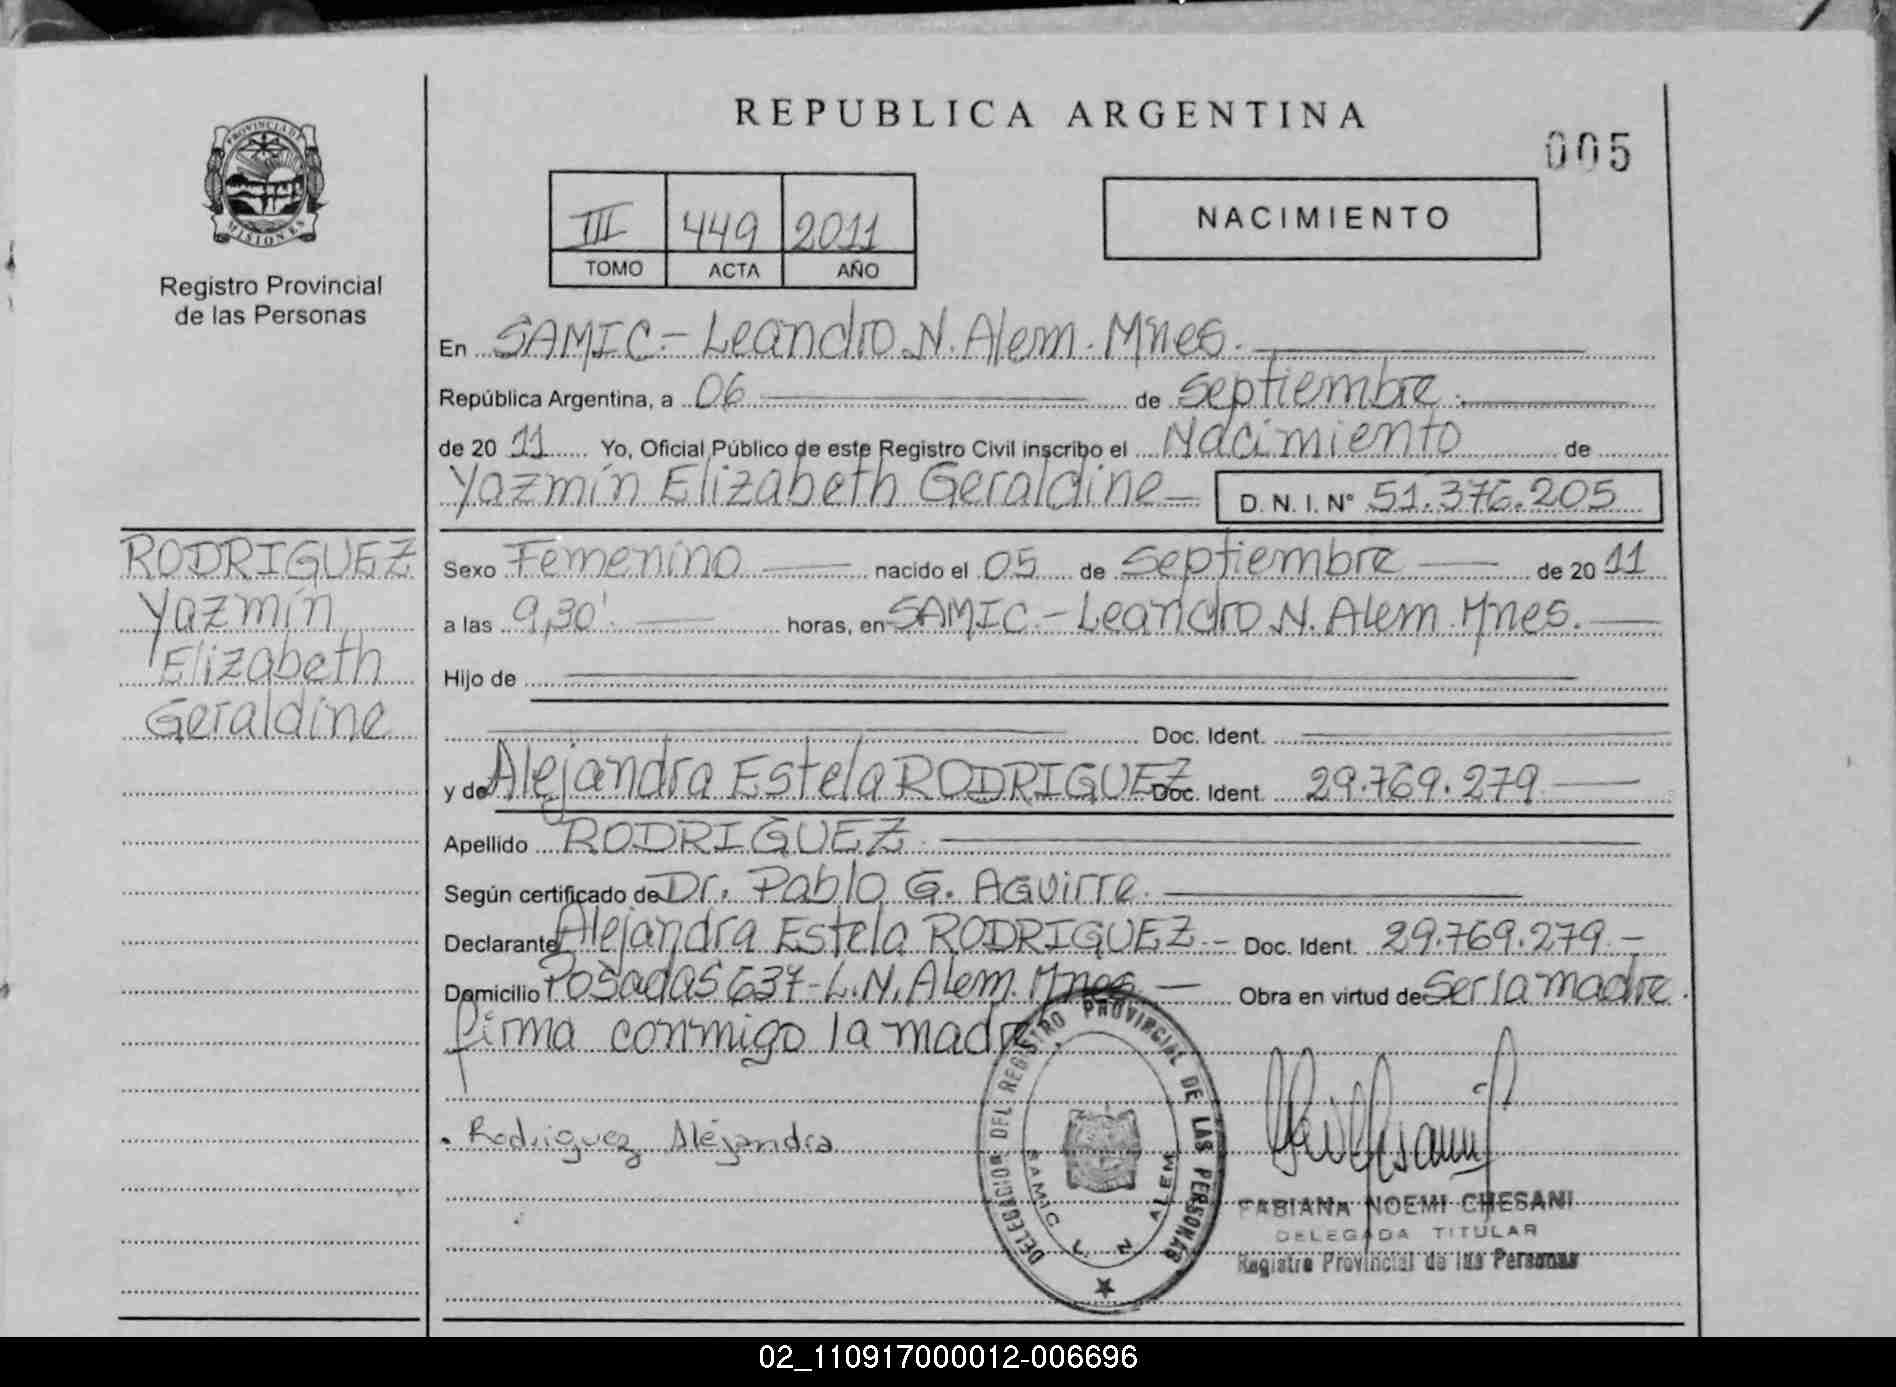 REPUBLICA ARGENTINA
005
PROVINCIA DE MISIONES
Registro Provincial
de las Personas
III 449 2011
TOMO ACTA AÑO
NACIMIENTO
En SAMIC.- Leandro N. Alem. Mnes.
República Argentina, a 06 de septiembre.
de 20 11 Yo, Oficial Público de este Registro Civil inscribo el Nacimiento de
Yazmín Elizabeth Geraldine D. N. I. N° 51.376.205
RODRIGUEZ
Yazmín
Elizabeth
Geraldine
Sexo Femenino nacido el 05 de septiembre de 20 11
a las 9,30' horas, en SAMIC.- Leandro N. Alem. Mnes.
Hijo de
Doc. Ident.
y de Alejandra Estela RODRIGUEZ Doc. Ident. 29.769.279
Apellido RODRIGUEZ.
Según certificado de Dr. Pablo G. Aguirre.
Declarante Alejandra Estela RODRIGUEZ.- Doc. Ident. 29.769.279.-
Domicilio Posadas 637- L.N. Alem. Mnes. Obra en virtud de ser la madre.
firma conmigo la madre.
Rodriguez Alejandra
DELEGACION DEL REGISTRO PROVINCIAL DE LAS PERSONAS
SAMIC L. N. ALEM
FABIANA NOEMI CHESANI
DELEGADA TITULAR
Registro Provincial de las Personas
02_110917000012-006696